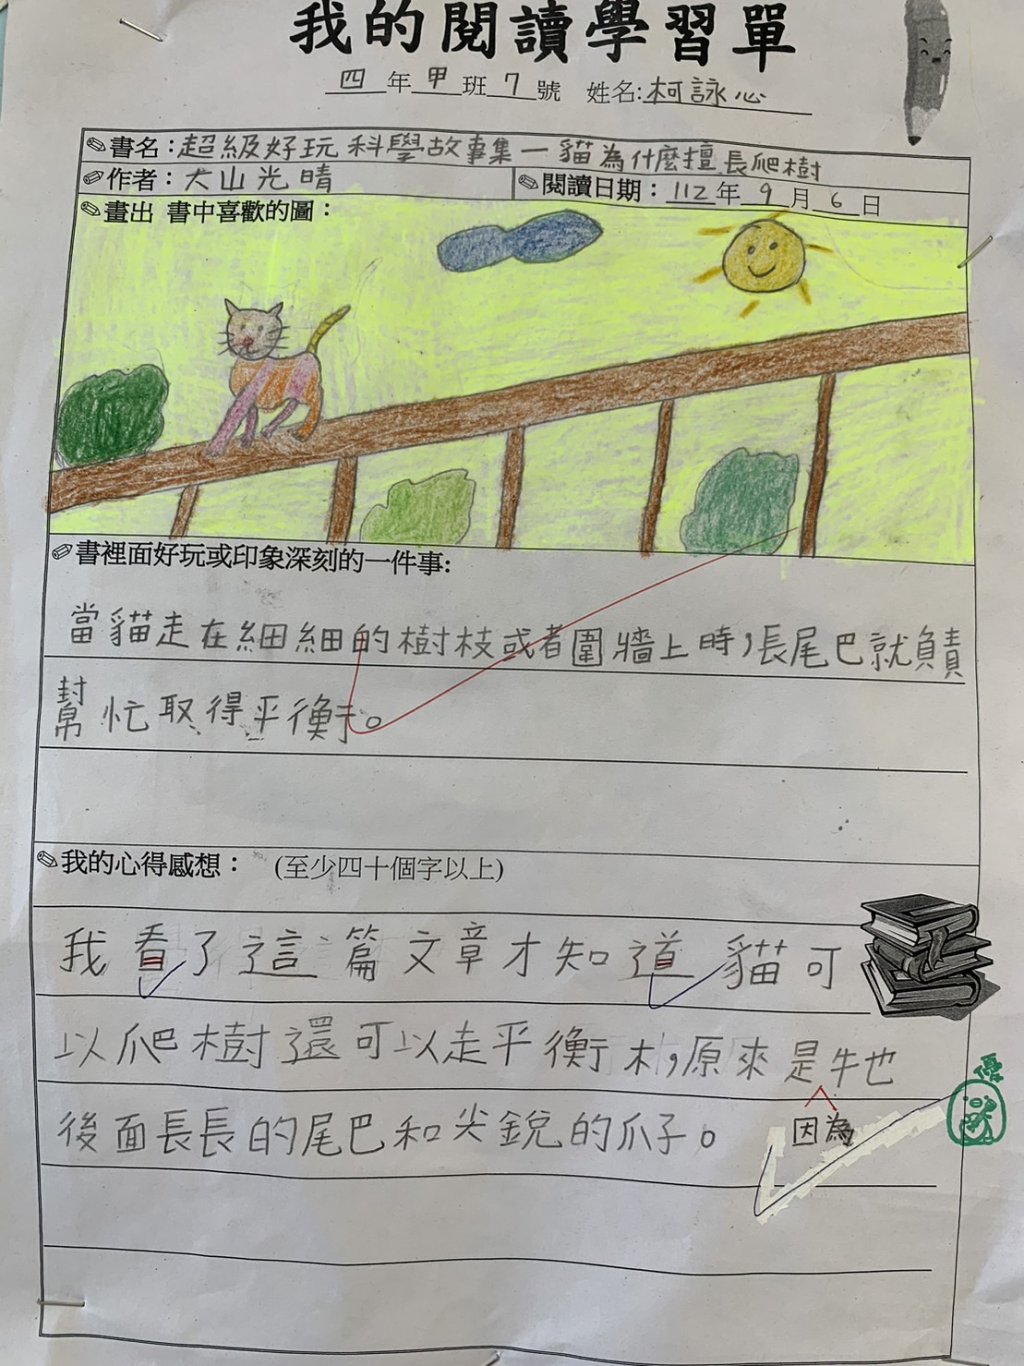 我的閱讀學習單
四年甲班7號 姓名:柯詠心
書名:超級好玩科學故事集一貓為什麼擅長爬樹
作者:犬山光晴
閱讀日期:112年9月6日
畫出 書中喜歡的圖:
書裡面好玩或印象深刻的一件事:
當貓走在細細的樹枝或者圍牆上時,長尾巴就負責
幫忙取得平衡。
我的心得感想: (至少四十個字以上)
我看了這篇文章才知道貓可
以爬樹還可以走平衡木,原來是牠
因為
後面長長的尾巴和尖銳的爪子。
優